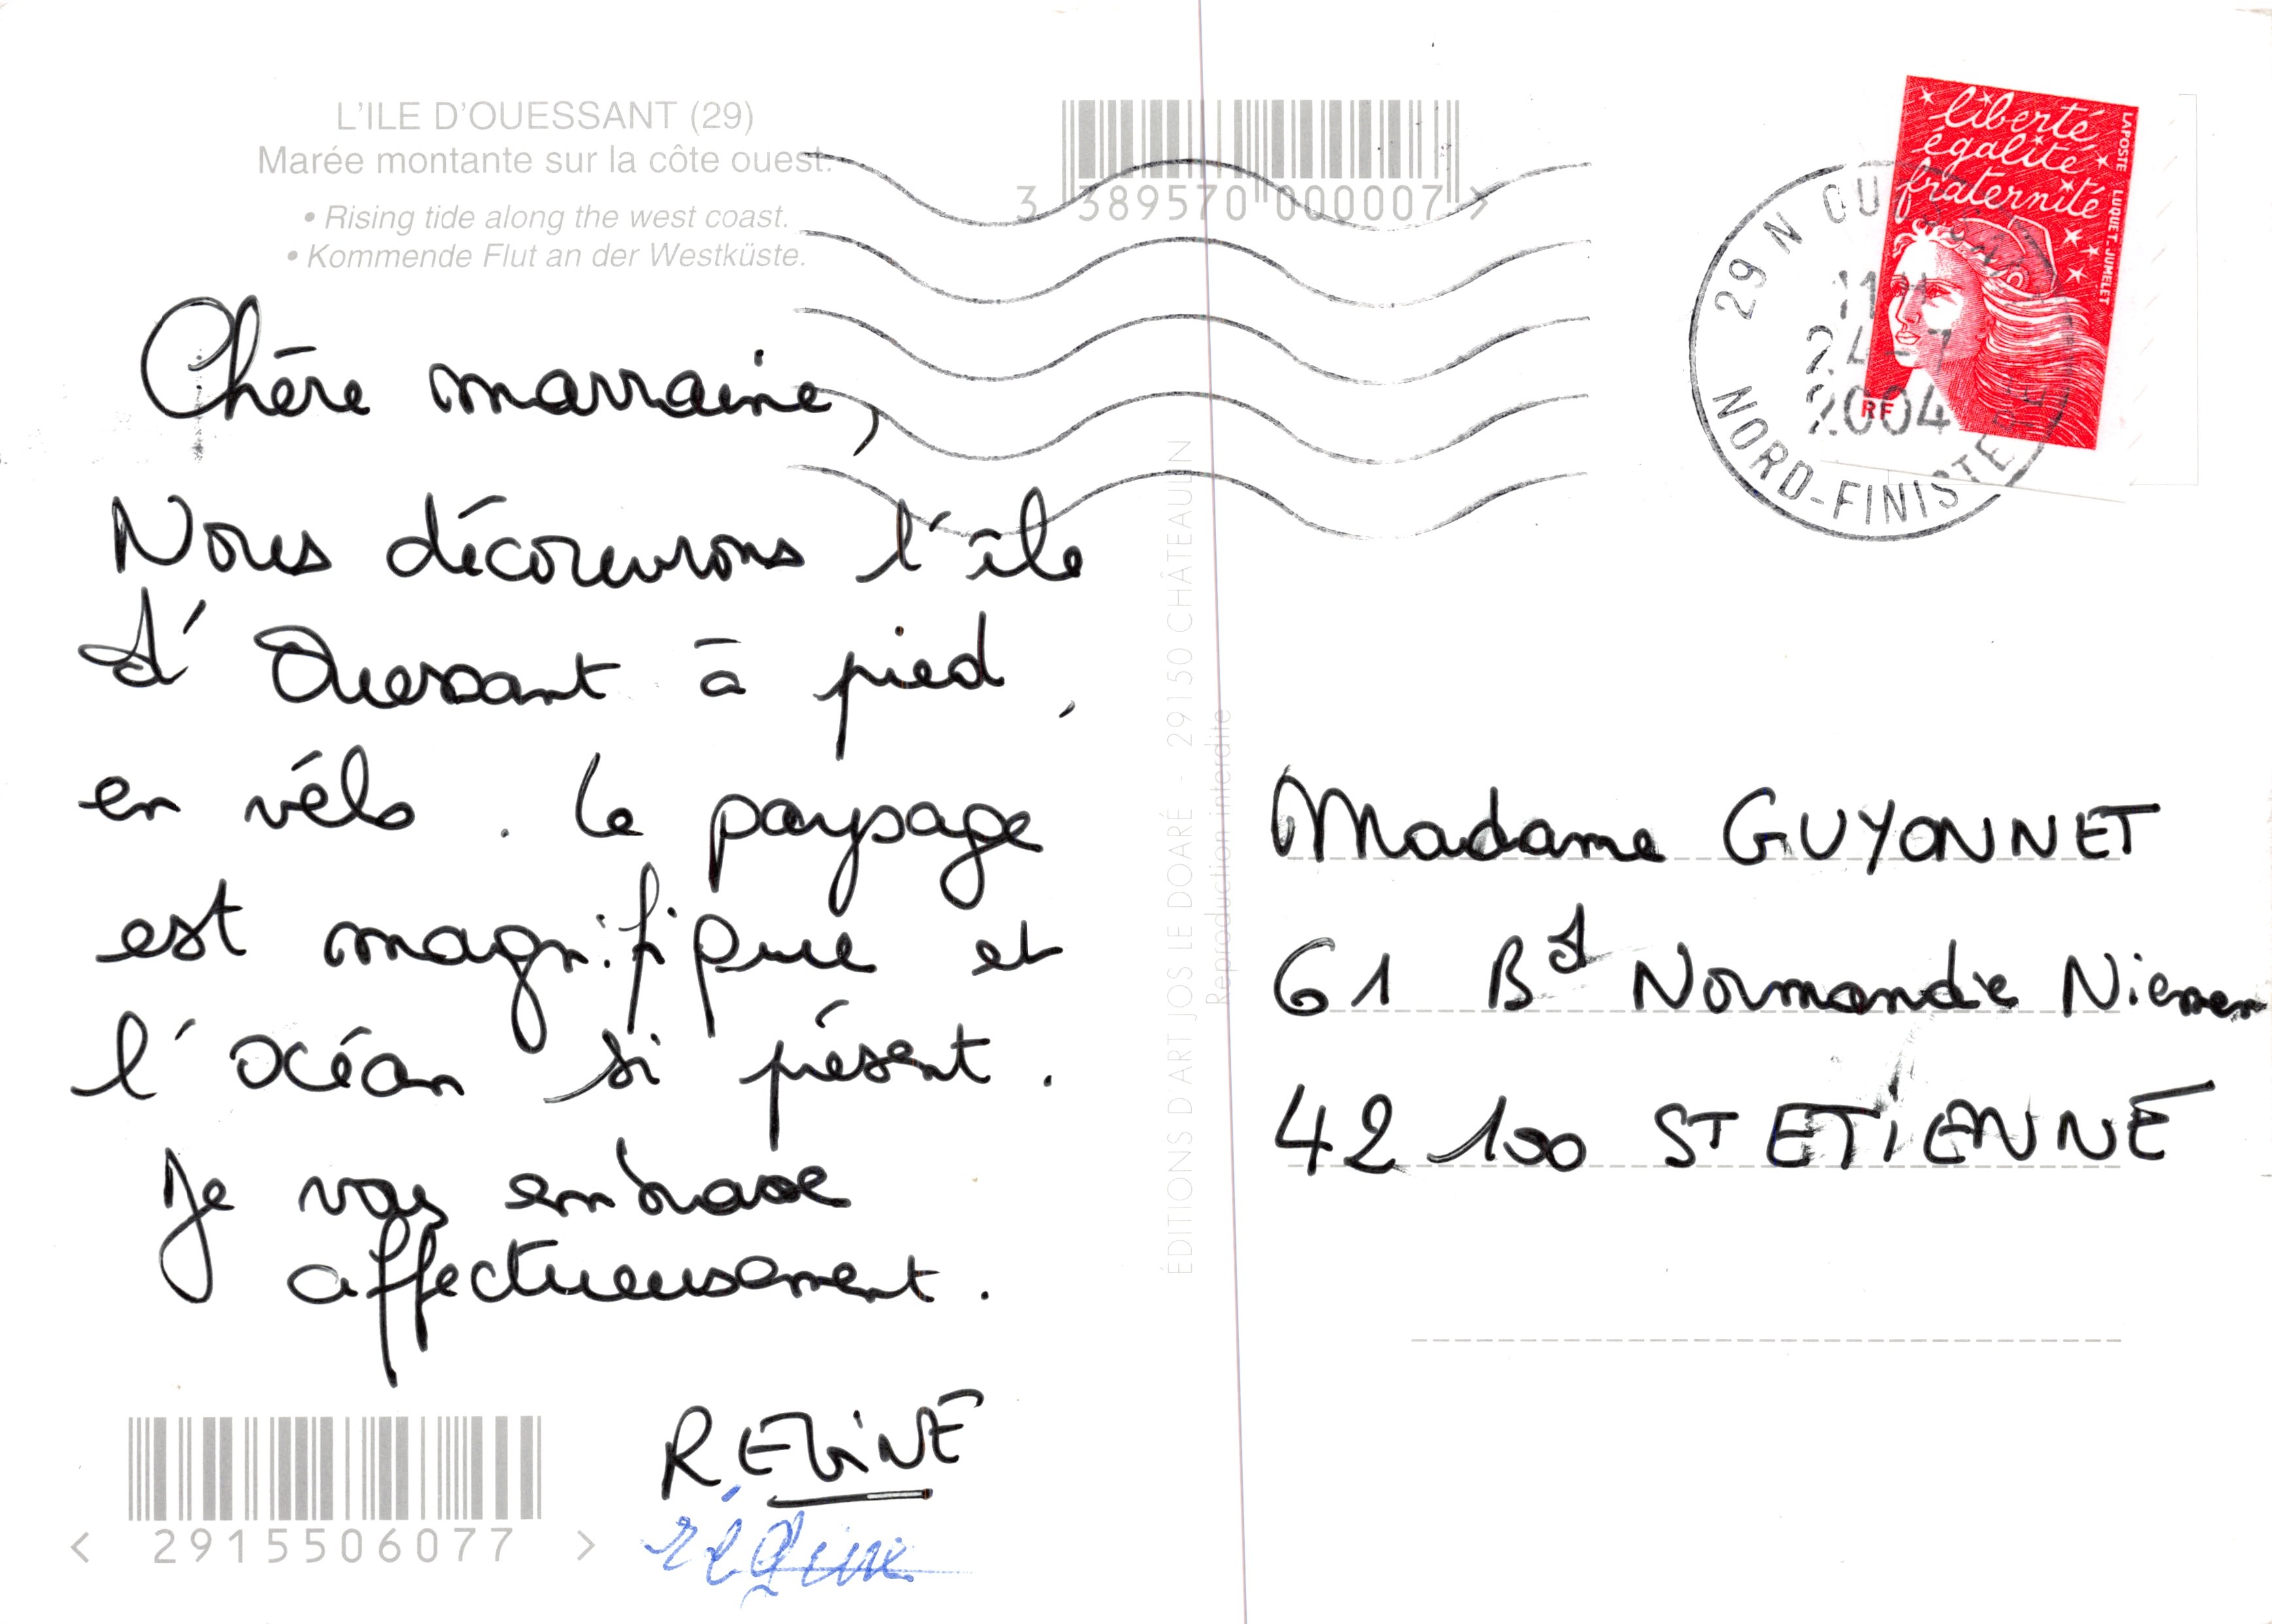 L'ILE D'OUESSANT (29)
Marée montante sur la côte ouest.
• Rising tide along the west coast.
• Kommende Flut an der Westküste.
3 389570 000007 >
Chère marraine,
Nous découvrons l'île
d'Ouessant à pied,
en vélo. Le paysage
est magnifique et
l'océan si présent.
Je vous embrasse
affectueusement.
REGINE
régine
< 2915506077 >
ÉDITIONS D'ART JOS LE DOARÉ - 29150 CHÂTEAULIN
Reproduction interdite
liberté
égalité
fraternité
LA POSTE LUQUET-JUMELET
RF
29 N OU
24-7
2004
NORD-FINISTERE
Madame GUYONNET
61 Bd Normandie Niemen
42100 ST ETIENNE